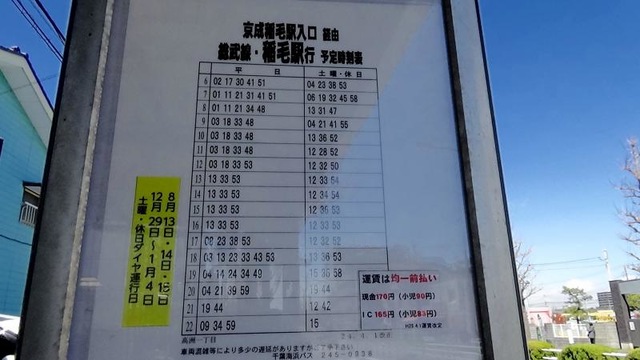 京成稲毛駅入口 経由
総武線・稲毛駅行 予定時刻表
平 日 土曜・休日
6 02 17 30 41 51 04 23 38 53
7 01 11 21 31 41 51 06 19 32 45 58
8 01 11 21 34 48 13 31 47
9 03 18 33 48 04 21 41 55
10 03 18 33 48 13 36 52
11 03 18 33 48 12 28 52
12 03 18 33 53 12 32 50
13 15 33 53 12 33 54
14 13 33 53 12 34 54
15 13 33 53 12 36 53
16 13 33 53 12 33 53
17 08 23 38 53 12 32 52
18 03 13 23 33 43 53 13 36 53
19 04 14 24 34 49 15 36 58
20 04 21 39 59 19 44
21 19 44 12 42
22 09 34 59 15
8月13日・14日・15日
12月29日～1月4日
土曜・休日ダイヤ運行日
運賃は均一前払い
現金170円（小児90円）
IC 165円（小児83円）
H29.4.1 運賃改定
高洲一丁目 24. 4. 1改正
車両混雑等により多少の遅延がありますがご了承下さい
千葉海浜バス 245-0938